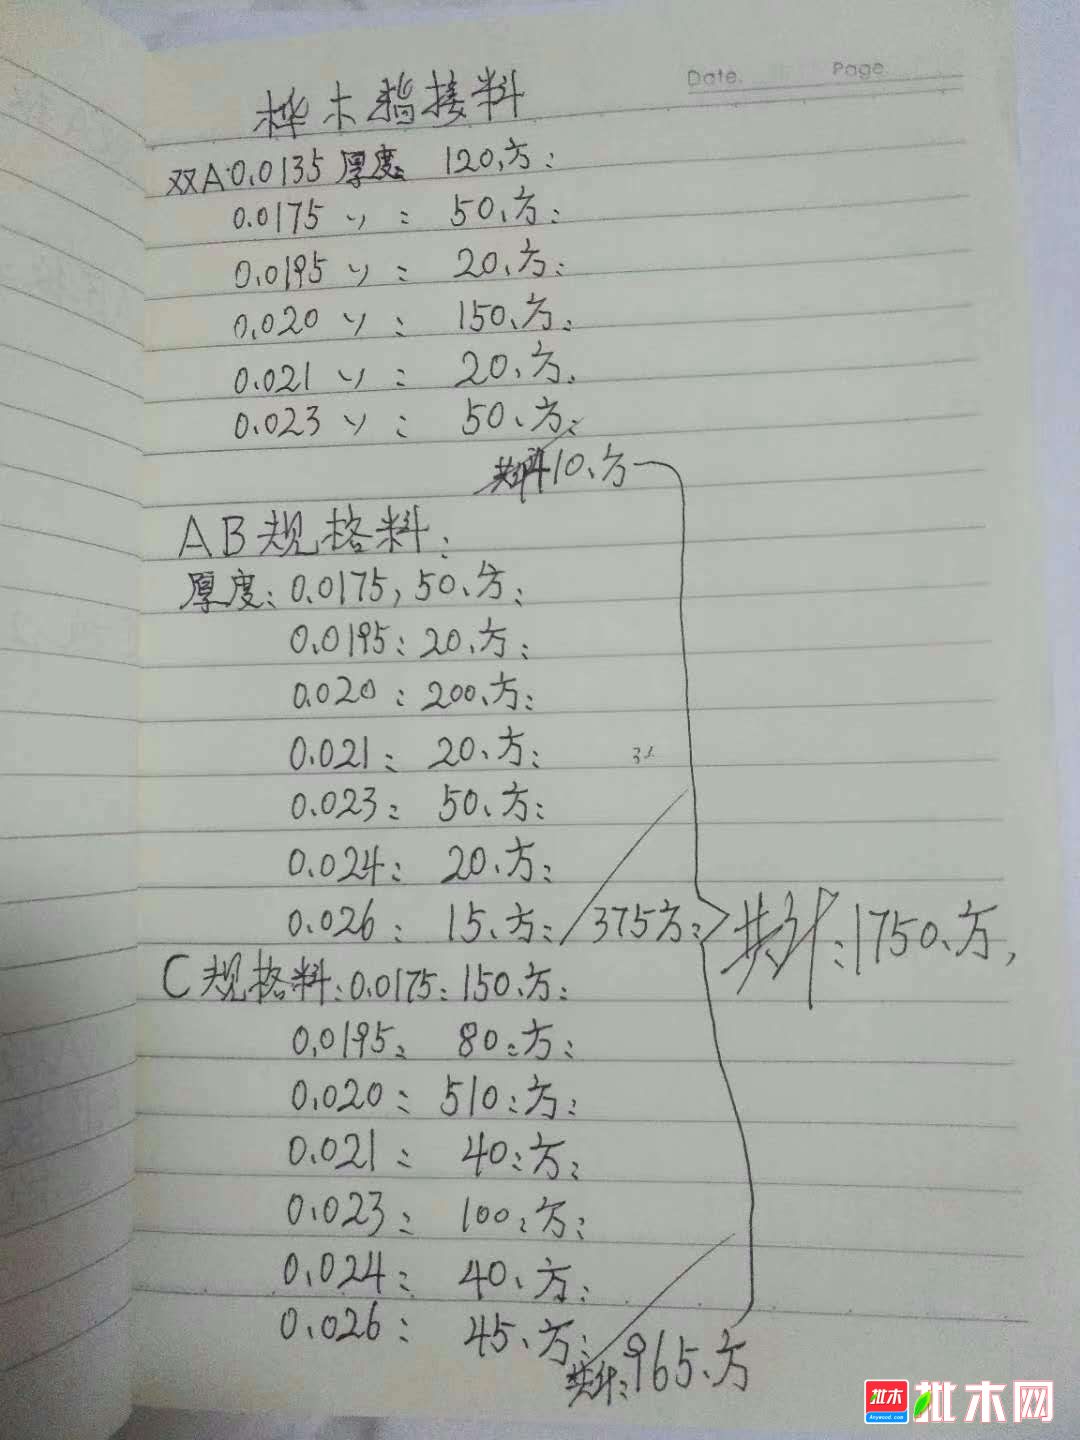 Date. Page
桦木指接料
双A:0.0135厚度: 120、方:
0.0175 〃: 50、方:
0.0195 〃: 20、方:
0.020 〃: 150、方:
0.021 〃: 20、方.
0.023 〃: 50、方:
共计410、方
AB规格料:
厚度:0.0175, 50、方:
0.0195: 20、方:
0.020: 200、方:
0.021: 20、方:
0.023: 50、方:
0.024: 20、方:
0.026: 15、方: 375方:
共计:1750、方,
C规格料:0.0175:150、方:
0.0195: 80:方:
0.020: 510:方:
0.021: 40:方:
0.023: 100:方:
0.024: 40、方:
0.026: 45、方:
共计:965、方
批木 Anywood.com 批木网